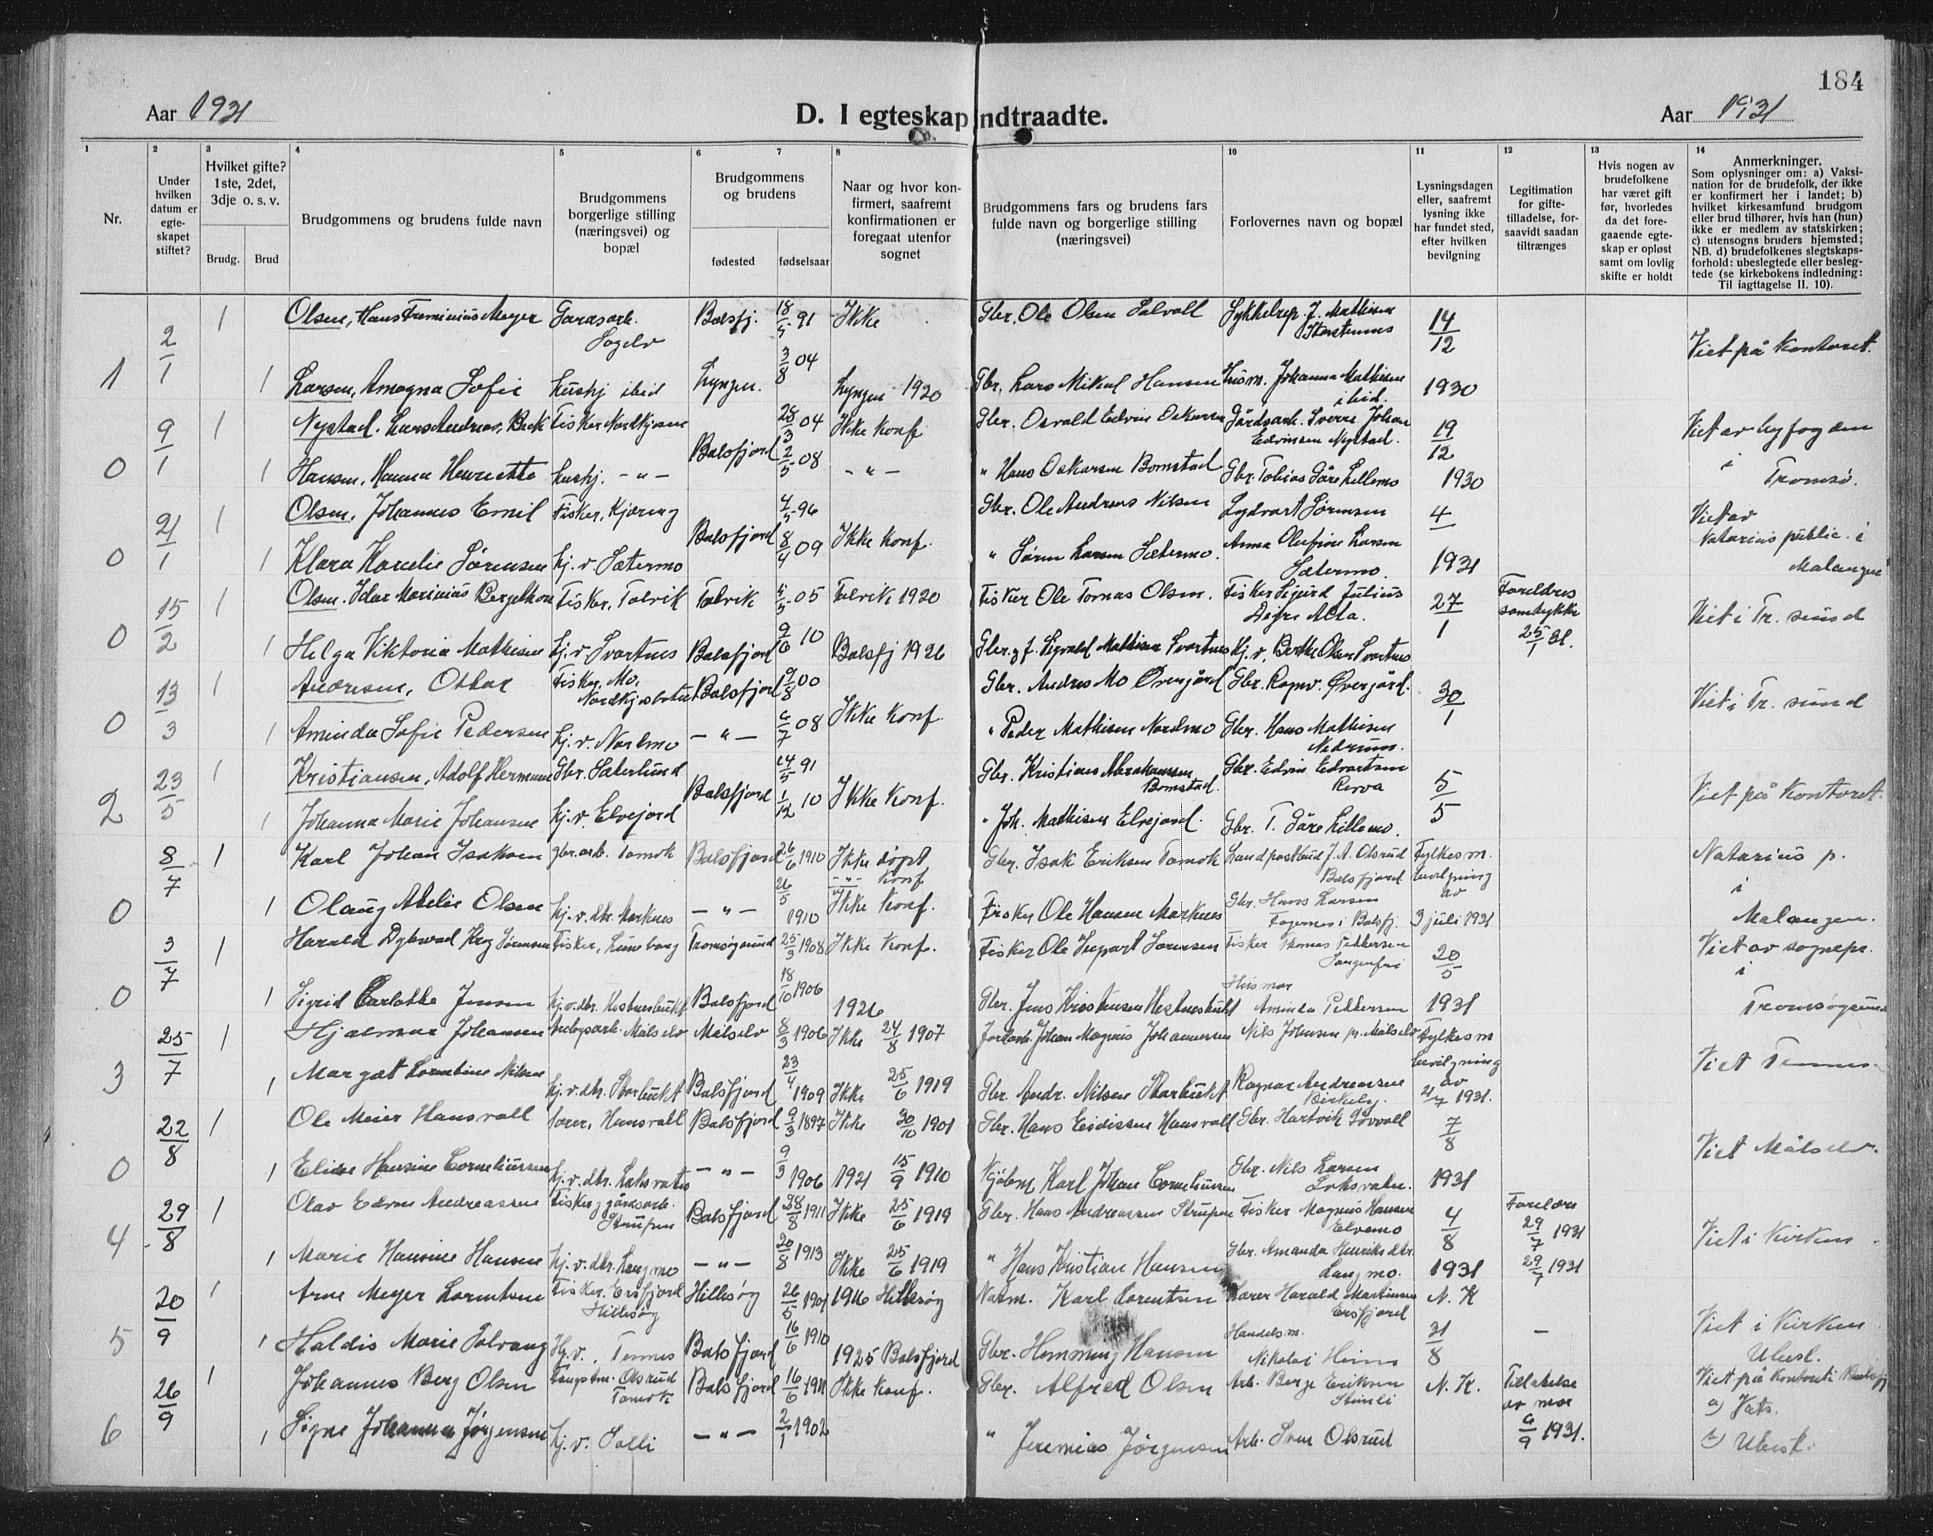 184
Aar 1931
D. I egteskap indtraadte.
Aar 1931
1 2 3 4 5 6 7 8 10 11 12 13 14
Nr.
Under hvilken datum er egte-skapet stiftet?
Hvilket gifte? 1ste, 2det, 3dje o. s. v.
Brudg. Brud
Brudgommens og brudens fulde navn
Brudgommens borgerlige stilling (næringsvei) og bopæl
Brudgommens og brudens
fødested fødselsaar
Naar og hvor kon-firmert, saafremt konfirmationen er foregaat utenfor sognet
Brudgommens fars og brudens fars fulde navn og borgerlige stilling (næringsvei)
Forlovernes navn og bopæl
Lysningsdagen eller, saafremt lysning ikke har fundet sted, efter hvilken bevilgning
Legitimation for gifte-tilladelse, for-saavidt saadan tiltrænges
Hvis nogen av brudefolkene har været gift før, hvorledes da det fore-gaaende egte-skap er opløst samt om lovlig skifte er holdt
Anmerkninger. Som oplysninger om: a) Vaksi-nation for de brudefolk, der ikke er konfirmert her i landet; b) hvilket kirkesamfund brudgom eller brud tilhører, hvis han (hun) ikke er medlem av statskirken; c) utensogns bruders hjemsted; NB. d) brudefolkenes slegtskaps-forhold: ubeslegtede eller besleg-tede (se kirkebokens indledning: Til iagttagelse II. 10).
2/1 1 Olsen, Hans Meyer Balsfj. 18/5 91 Ikke Gbr. Ole Olsen J. Mathisen 14/12
Viet på Kontoret.
1 1 Larsen, Amagna Sofie husbj ibid Lyngen. 3/8 04 Lyngen 1920 Gbr. Lars Mikal Hansen Husm. Johanna Mathisen ibid. 1930
9/1 1 Nystad, Lars Andreas, Beck Fisker Nordkjosen 28/3 04 Ikke Konf Gbr. Osvald Edvin Oskarsen Gårdsarb. Sverre Johan Edvinsen Nystad. 19/12 Viet av byfogden
0 1 Hansen, Hanna Henriette husbj. -"- Balsfjord 2/5 08 -"- " Hans Oskarsen Bomstad Gbr. Tobias Gåre Lillemo 1930 i Tromsø.
21/1 1 Olsen, Johannes Emil Fisker, 4/5 96 Gbr. Ole Andreas Nilsen Sørensen 4/ Viet av
0 1 Klara Sørensen hj. v. Sætermo Balsfjord 8/4 09 Ikke Konf. " Søren Larsen Sætermo. Anna Larsen Sætermo. 1931 Notarius public. i Malangen
15/2 1 Olsen, Idar Marinius Fisker, Talvik Talvik 4/5 05 Talvik 1920 Fisker Ole Tomas Olsen. Fisker Sigurd Julius Alta. 27/1 Foreldres samtykke Viet i Tr. sund
0 1 Helga Viktoria Mathisen hj. v. Svartnes Balsfjord 9/6 10 Balsfj 1926 Gbr. Sigvald Mathisen Svartnes hj. v. Berthe Olsen Svartnes 25/1 31.
13/3 1 Andresen, Oskar Fisker, Mo, Balsfjord 9/8 00 Gbr. Andreas Mo Øvergård Gbr. Ragnv. Øvergård. 30/1 Viet i Tr. sund
0 1 Aminda Sofie Pedersen hj. v. Nordmo -"- 6/7 08 Ikke Konf. " Peder Mathisen Nordmo Gbr. Hans Mathisen
23/5 1 Kristiansen, Adolf Hermann Gbr. Sæterlund 24/5 91 Gbr. Kristians Abrahamsen Bomstad. Gbr. Edvin Edvartsen 5/5 Viet på Kontoret.
2 1 Johanna Marie Johansen hj. v. Elvejord Balsfjord 1/12 10 Ikke Konf. " Joh. Mathisen Elvejord. Gbr. T. Gåre Lillemo.
8/7 1 Karl Johan Isaksen gbr. arb. Tamok Balsfjord 26/6 1910 Ikke døpt -"- Konf Gbr. Isak Eriksen Tamok Landpostbud J. A. Olsrud Balsfjord. Fylkesm. bevilgning av Natarius p. i
0 1 Olaug Olsen hj. v. dtr. Markenes -"- 26/5 1910 Ikke Konf. Fisker Ole Hansen Markenes Gbr. Hans Larsen Fagernes i Balsfj. 3 juli 1931 Malangen.
3/7 1 Harald Dybwad Krog Sørensen Fisker, Tromsøsund 25/3 1908 Ikke Konf. Fisker Ole Sørensen Fisker Thomas Pettersen 20/5 Viet av sognepr. i
0 1 Sigrid Carlotte Jensen hj. v. dtr. Balsfjord 18/10 1906 1926 Gbr. Jens Kristensen Aminda Pettersen 1931 Tromsøsund
25/7 1 Hjalmar Johansen Målselv Målselv 8/3 1906 Ikke 24/8 1907 Johan Magnus Johannessen Nils Johnsen p. Målselv Fylkesm bevilgning av Viet
3 1 Margot Nilsen hj. v. dtr. Storbukt Balsfjord 23/4 1909 Ikke 25/6 1919 Gbr. Andr. Nilsen Storbukt Ragnar Andreassen 21/7 1931.
22/8 1 Ole Meier Hansvoll Hansvoll Balsfjord 9/3 1897 Ikke 30/10 1901 Gbr. Hans Hansvoll Gbr. Hartvik 7/8 Viet Målselv.
0 1 Elise Hansine Corneliussen hj. v. dtr. Laksvatn -"- 9/3 1906 1921 15/9 1910 Kjøbm Karl Johan Corneliussen Gbr. Nils Larsen Laksvatn. 1931
29/8 1 Olav Edvin Andreassen Fisker g gårdsarb. Strupen Balsfjord 28/8 1911 Ikke 25/6 1919 Gbr. Hans Andreassen Strupen Fisker Magnus Hansen Elvemo 4/8 Foreldre 29/7 1931 Viet i Kirken
4 1 Marie Hansine Hansen hj. v. dtr. Langmo -"- 20/8 1913 Ikke 25/6 1919 " Hans Kristian Hansen Gbr. Amanda Henriks dtr. Langmo. 1931 29/7 1931
20/9 1 Arne Meyer Lorentsen Fisker. Ersfjord Hillesøy Hillesøy 26/5 1901 1916 Hillesøy Karl Lorentsen Harald Martinus Ersfjord N. K Viet i Kirken
5 1 Haldis Marie Solvang Hj. v. Tennes Balsfjord 16/6 1910 1925 Balsfjord Gbr. Hemming Hansen Handelsm. Nikolai 31/8 - Ubesl.
26/9 1 Johannes Berg Olsen Olsrud Tamok Balsfjord 16/6 1911 Ikke Konf. Gbr. Alfred Olsen Arb. Berge Eriksen N. K. Tillatelse av mor Viet på Kontoret i a) Vaks.
6 1 Signe Johanna Jørgensen hj. v. Solli -"- 2/1 1902 " Jeremias Jørgensen Arb. Sven Olsrud 6/9 1931. b) Ubesl.